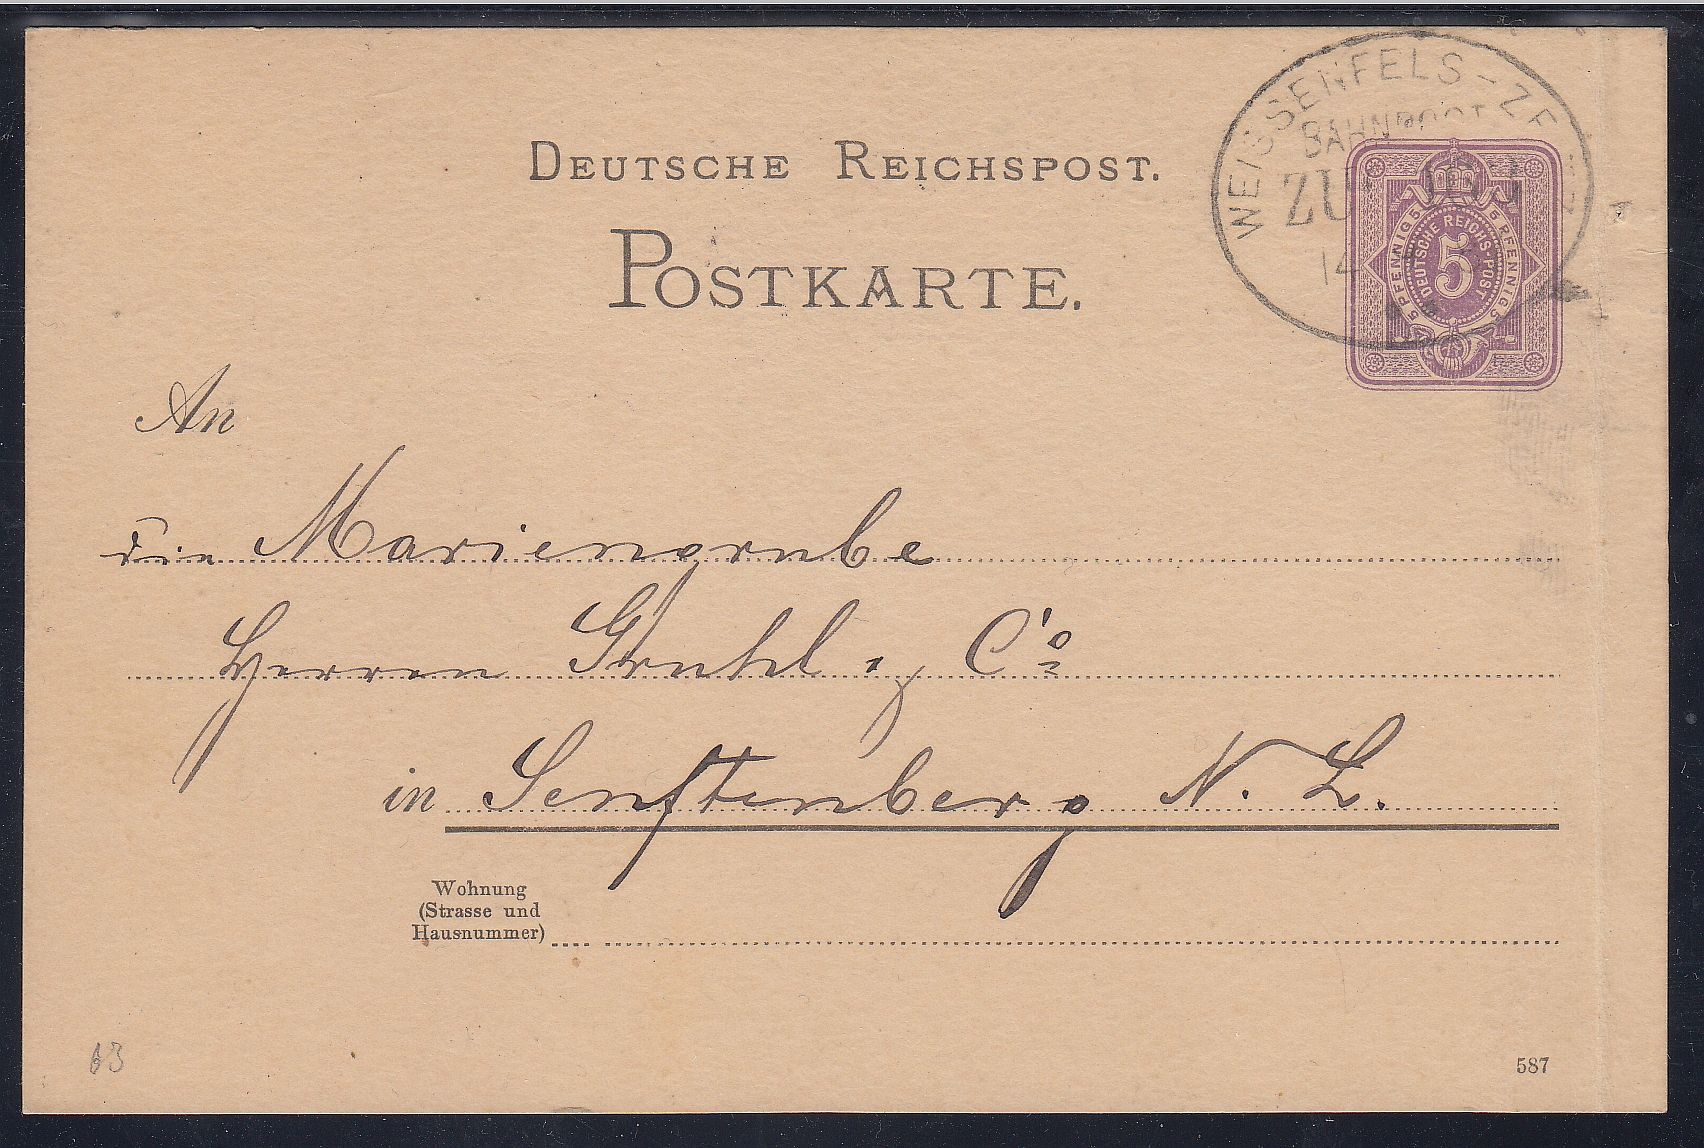 WEISSENFELS - ZE
BAHNPOST
ZUG
14
DEUTSCHE REICHSPOST.
5 PFENNIG 5 5 PFENNIG 5
DEUTSCHE REICHS-POST
5
POSTKARTE.
An
die Mariengrube
Herren Gruhl & Co
in Senftenberg N. L.
Wohnung
(Strasse und
Hausnummer)
63
587